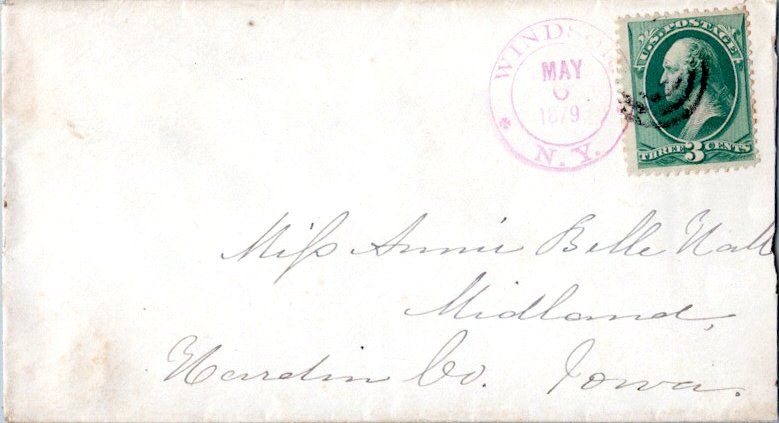 WINDSOR
MAY
6
1879
N.Y.
U.S. POSTAGE
THREE 3 CENTS
Miss Annie Belle Hall
Midland,
Hardin Co. Iowa.